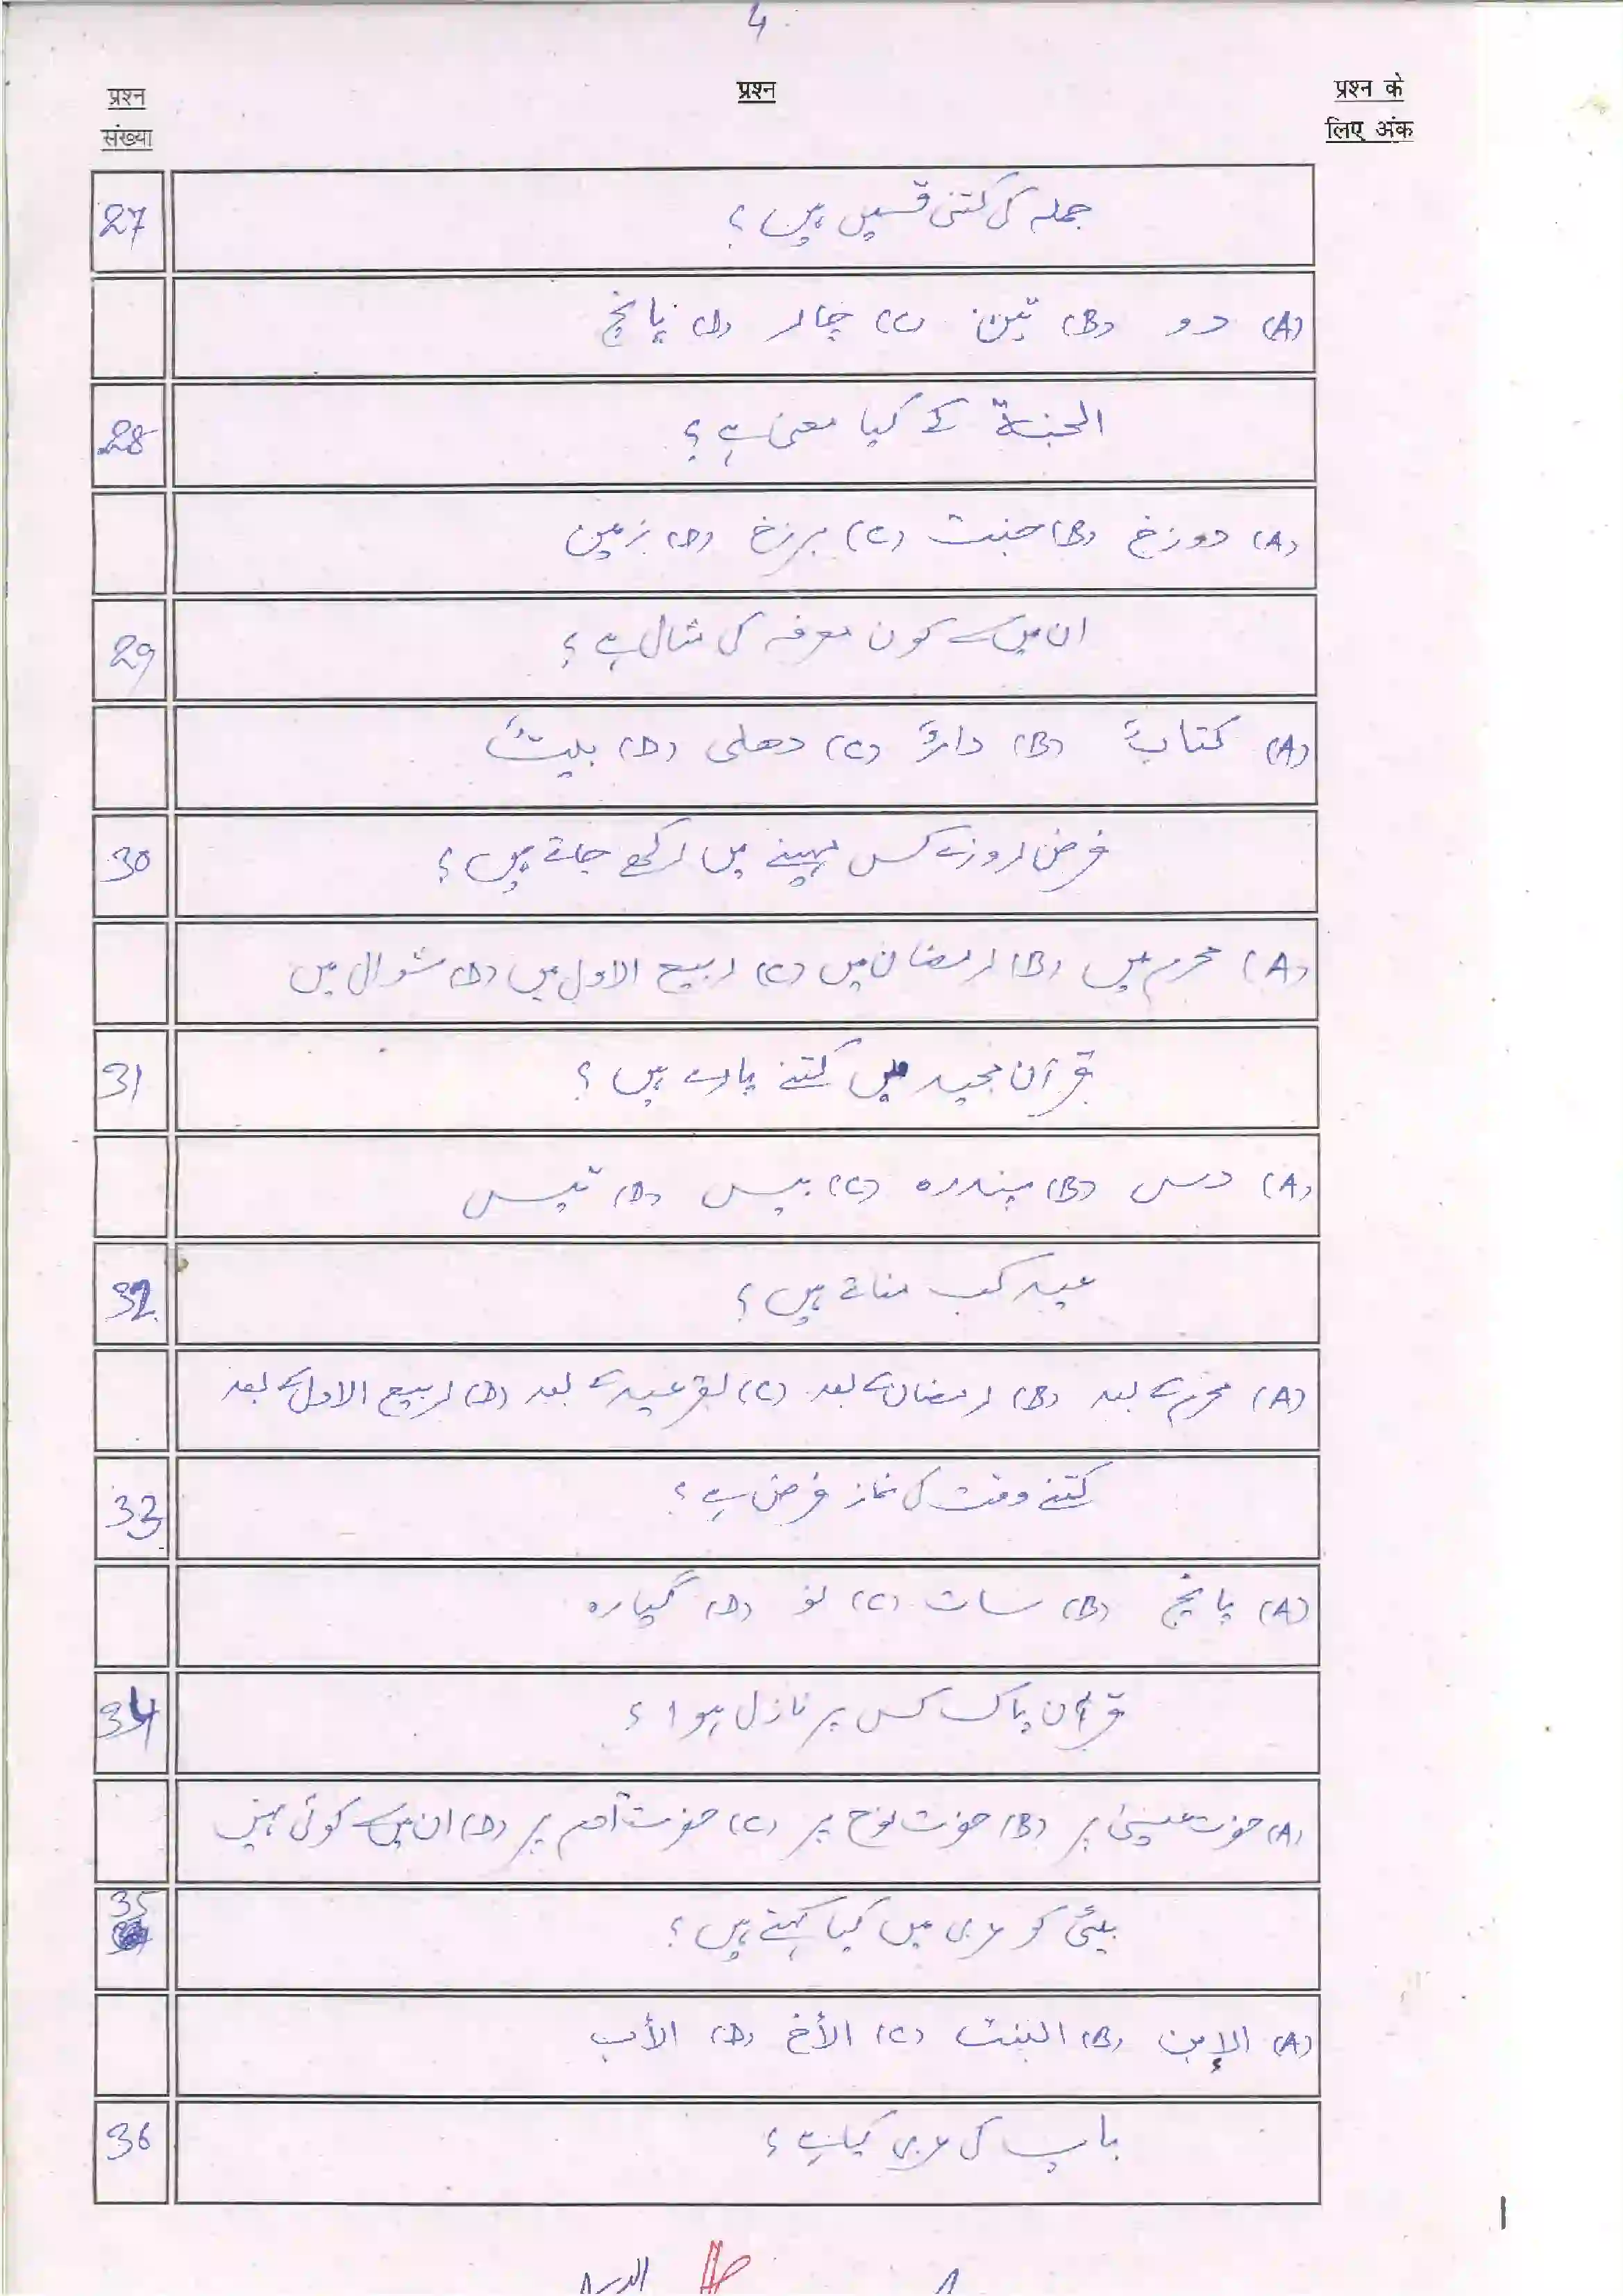 4
प्रश्न संख्या
प्रश्न
प्रश्न के लिए अंक
27
جملہ کی کتنی قسمیں ہیں ؟
(A) دو (B) تین (C) چار (D) پانچ
28
الجنۃ کے کیا معنی ہے ؟
(A) دوزخ (B) جنت (C) برزخ (D) زمین
29
ان میں سے کون معرفہ کی مثال ہے ؟
(A) کتابٌ (B) دارٌ (C) دھلی (D) بیتٌ
30
فرض روزے کس مہینے میں رکھے جاتے ہیں ؟
(A) محرم میں (B) رمضان میں (C) ربیع الاول میں (D) شوال میں
31
قرآن مجید میں کتنے پارے ہیں ؟
(A) دس (B) پندرہ (C) بیس (D) تیس
32
عید کب مناتے ہیں ؟
(A) محرم کے بعد (B) رمضان کے بعد (C) بقرعید کے بعد (D) ربیع الاول کے بعد
33
کتنے وقت کی نماز فرض ہے ؟
(A) پانچ (B) سات (C) نو (D) گیارہ
34
قرآن پاک کس پر نازل ہوا ؟
(A) حضرت عیسیٰ پر (B) حضرت نوح پر (C) حضرت آدم پر (D) ان میں سے کوئی نہیں
35
بیٹی کو عربی میں کیا کہتے ہیں ؟
(A) الإبن (B) البنت (C) الأخ (D) الأب
36
باپ کی عربی کیا ہے ؟